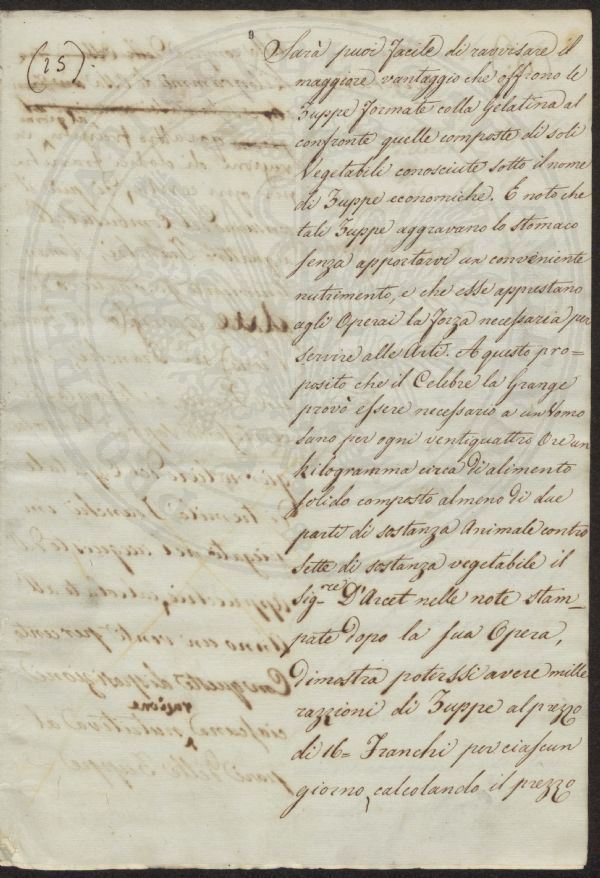 (15)
Sarà puoi facile di ravvisare il
maggiore vantaggio che offrono le
Zuppe formate colla Gelatina al
confronte quelle composte di soli
Vegetabili conosciute sotto il nome
di Zuppe economiche. È noto che
tali Zuppe aggravano lo stomaco
senza apportarvi un conveniente
nutrimento, e che esse apprestano
agli Operai la forza necessaria per
servire alle Arti. A questo pro=
posito che il Celebre la Grange
provò essere necessario a un Uomo
sano per ogni ventiquattro Ore un
kilogramma circa di alimento
solido composto almeno di due
parti di sostanza Animale contro
sette di sostanza vegetabile il
sig.re D'Arcet nelle note stam_
pate dopo la sua Opera,
dimostra potersi avere mille
razzioni di Zuppe al prezzo
di 16= Franchi per ciascun
giorno, calcolando il prezzo